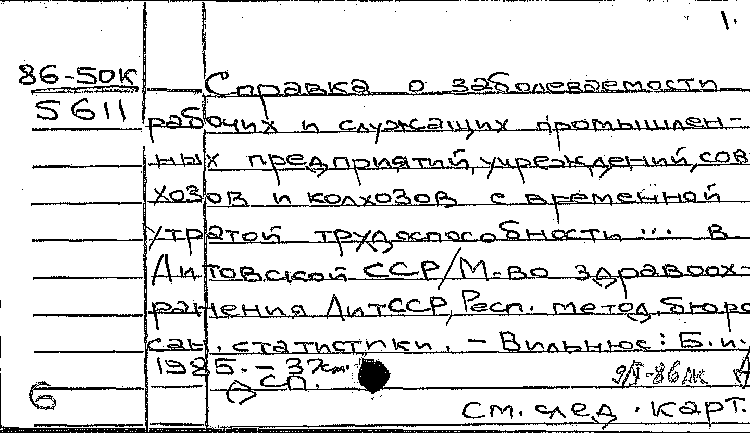 1.
86-50к Справка о заболеваемости
5611 рабочих и служащих промышлен-
ных предприятий, учреждений, сов
хозов и колхозов с временной
утратой трудоспособности ... в
Литовской ССР/М-во здравоох-
ранения ЛитССР, Респ. метод. бюро
сан. статистики. - Вильнюс: Б.и.,
1985. - 37с.
СП.
6 см. след. карт.